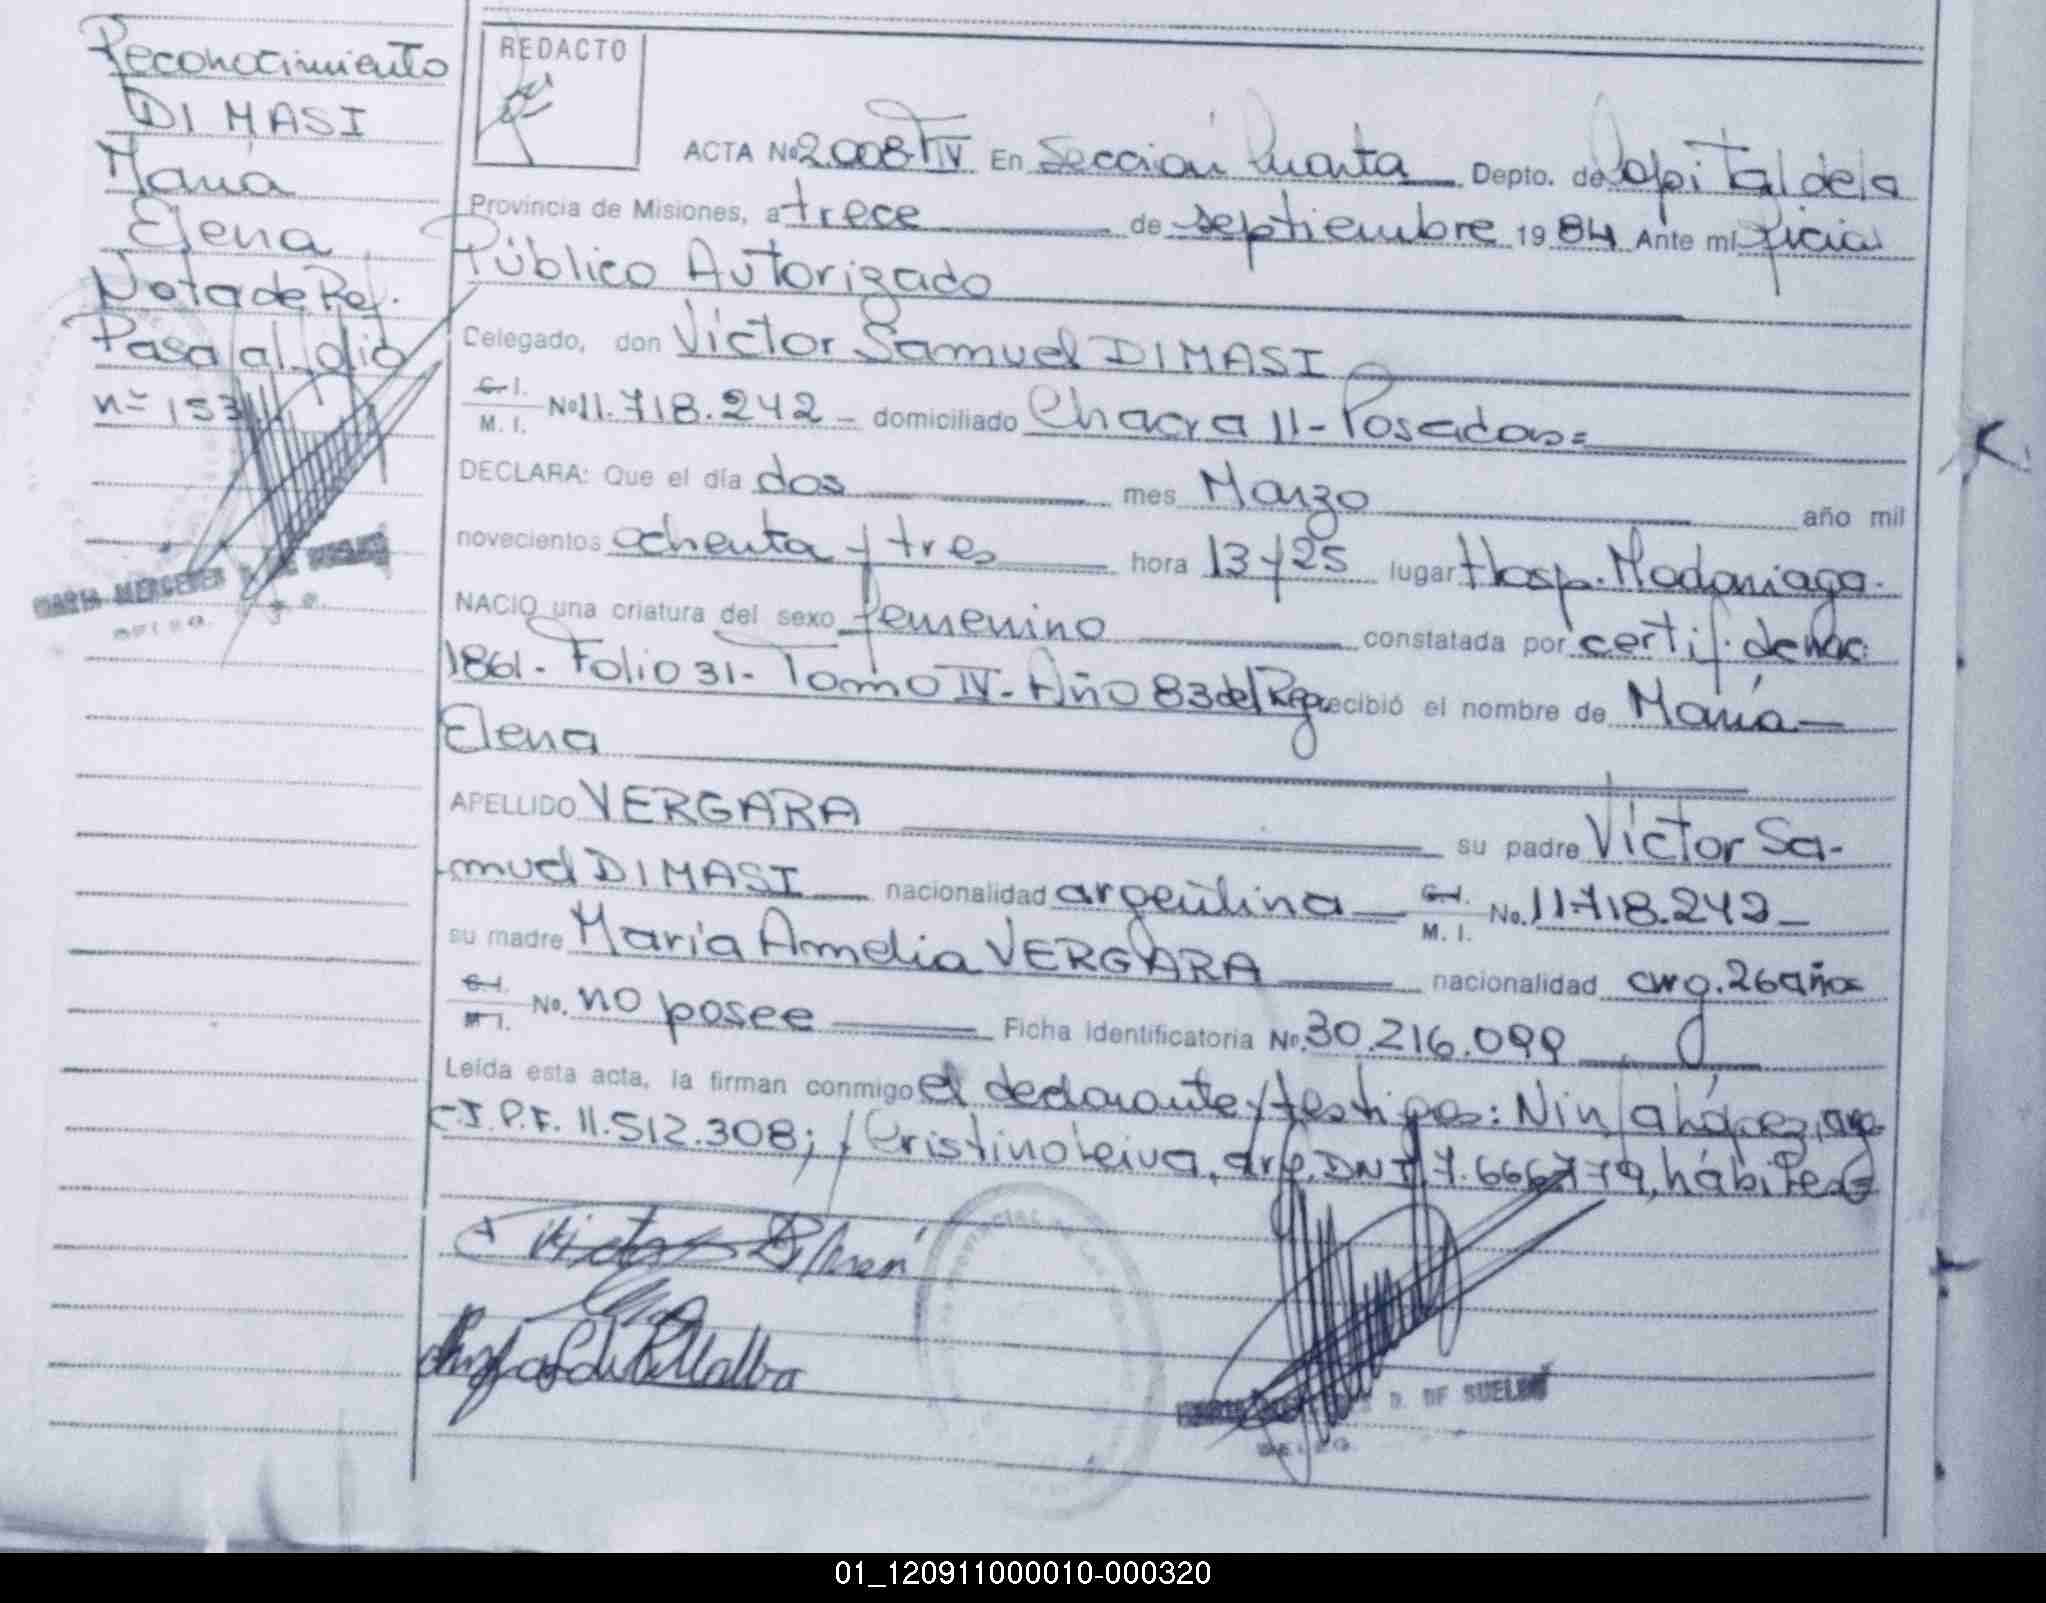 Reconocimiento
DI MASI
María
Elena
Nota de Ref.
Pasa al folio
nº 153
REDACTO
ACTA Nº 2.008 T IV En Sección Cuarta Depto. de Capital de la
Provincia de Misiones, a trece de septiembre 19 84 Ante mí Oficial
Público Autorizado
Celegado, don Víctor Samuel DIMASI
C. I.
M. I. Nº 11.718.242 - domiciliado Chacra 11 - Posadas =
DECLARA: Que el día dos mes Marzo año mil
novecientos ochenta y tres hora 13 y 25 lugar Hosp. Madariaga.
NACIO una criatura del sexo femenino constatada por certif. de nac.
1861 - Folio 31 - Tomo IV - Año 83 del Reg. recibió el nombre de María
Elena
APELLIDO VERGARA su padre Víctor Sa-
muel DIMASI nacionalidad argentina C. I.
M. I. No. 11.718.242 -
su madre María Amelia VERGARA nacionalidad arg. 26 años
C. I.
M. I. No. no posee Ficha identificatoria No. 30.216.099
Leída esta acta, la firman conmigo el declarante y testigos:
C.I.P.F. 11.512.308; y Cristino Leiva, arg. DNI 7.666.779, hábiles
D. DE SUELDO
01_120911000010-000320